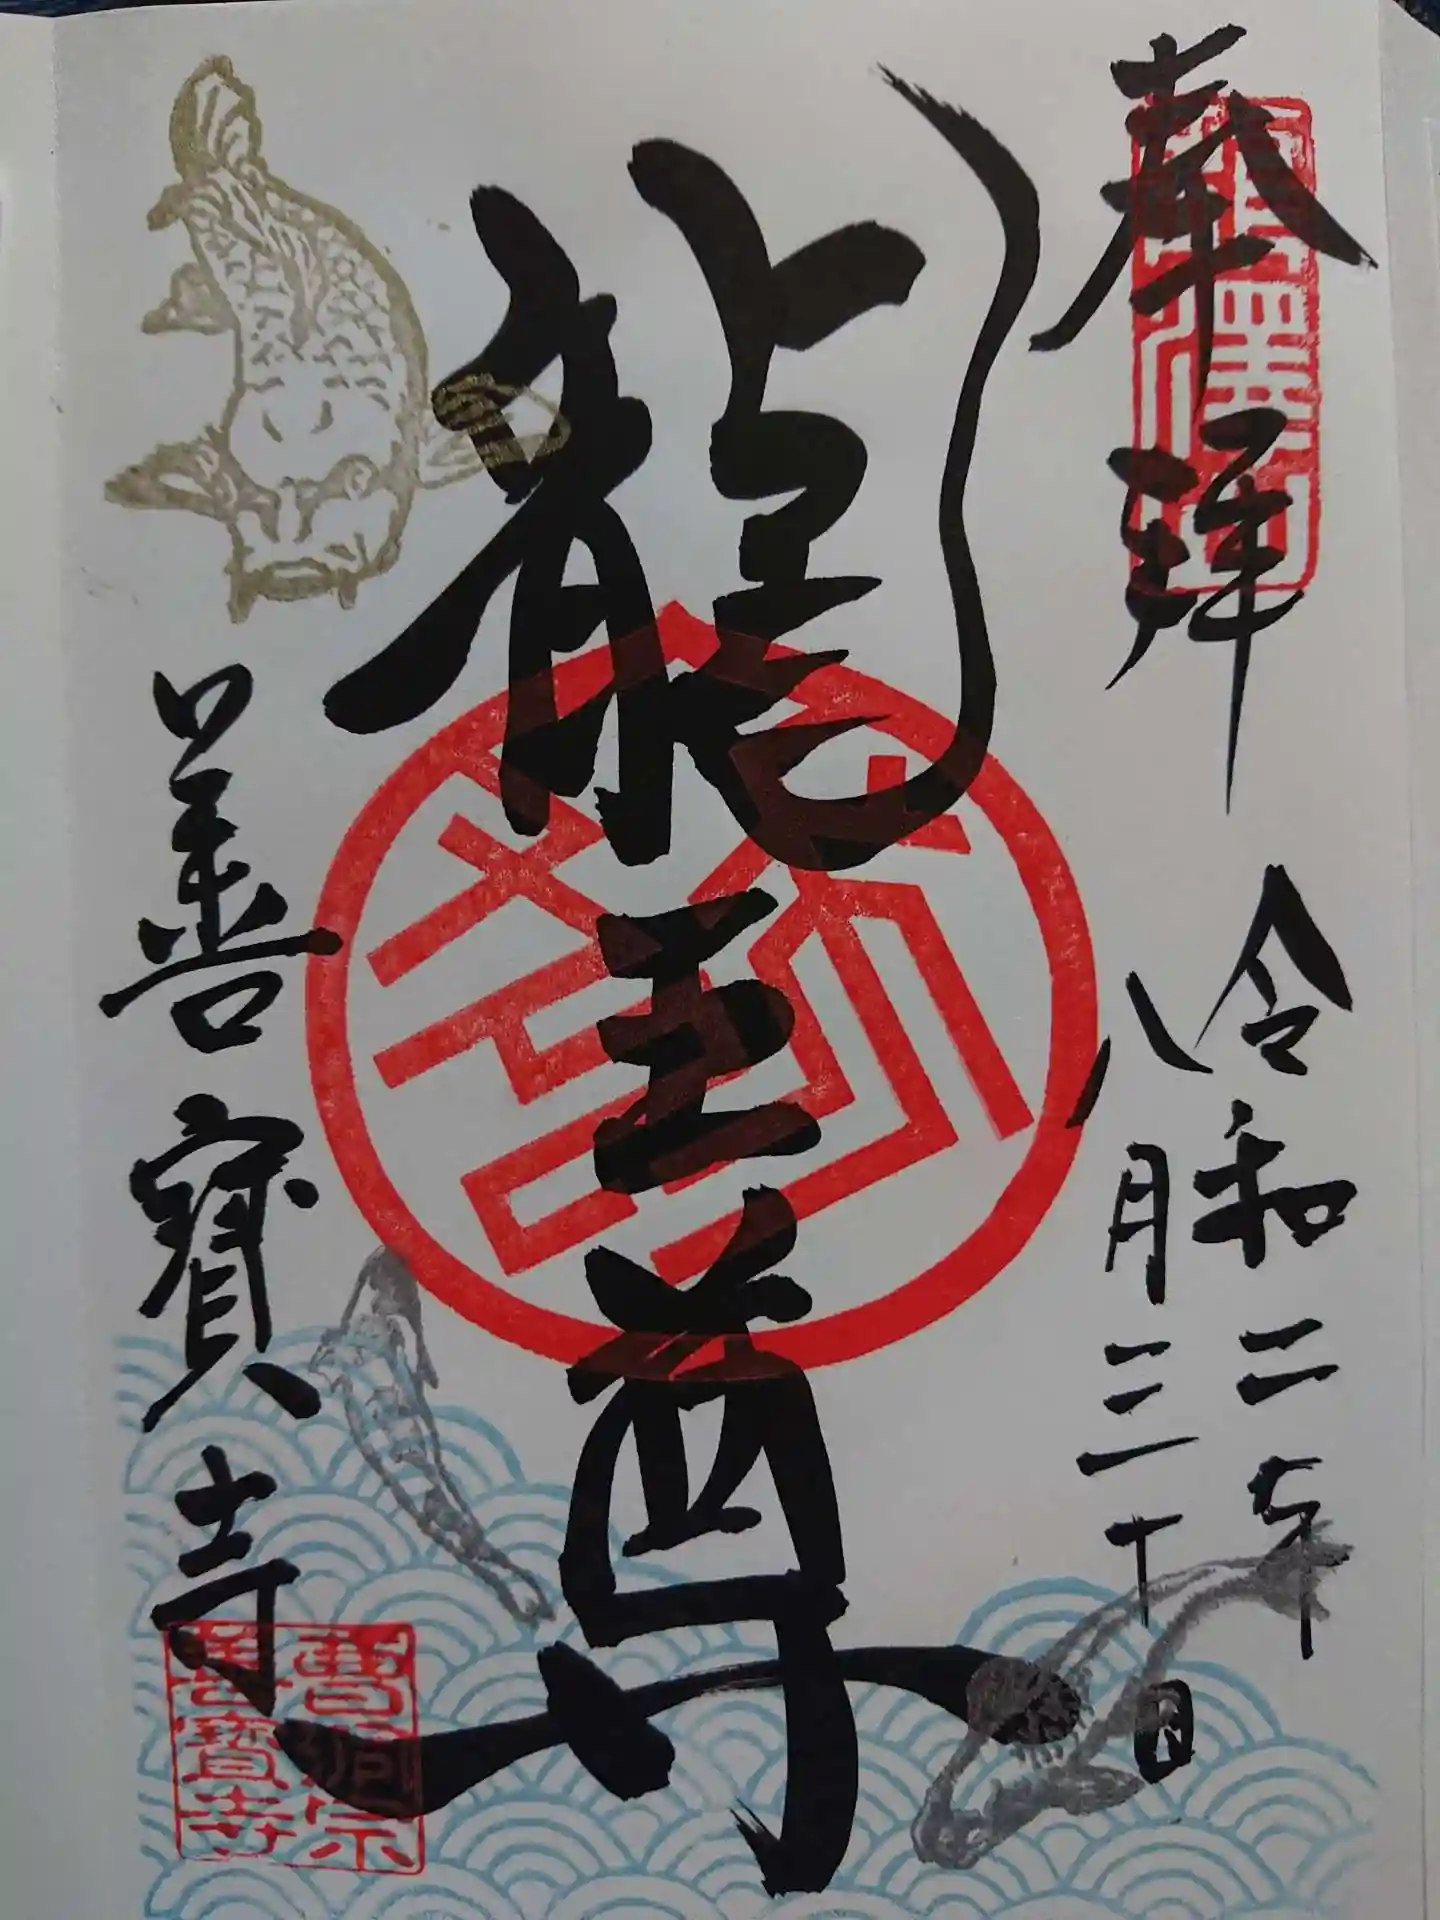 奉拜
令和二年
八月三十日
龍王尊
善寳寺
曹洞宗
善寳寺